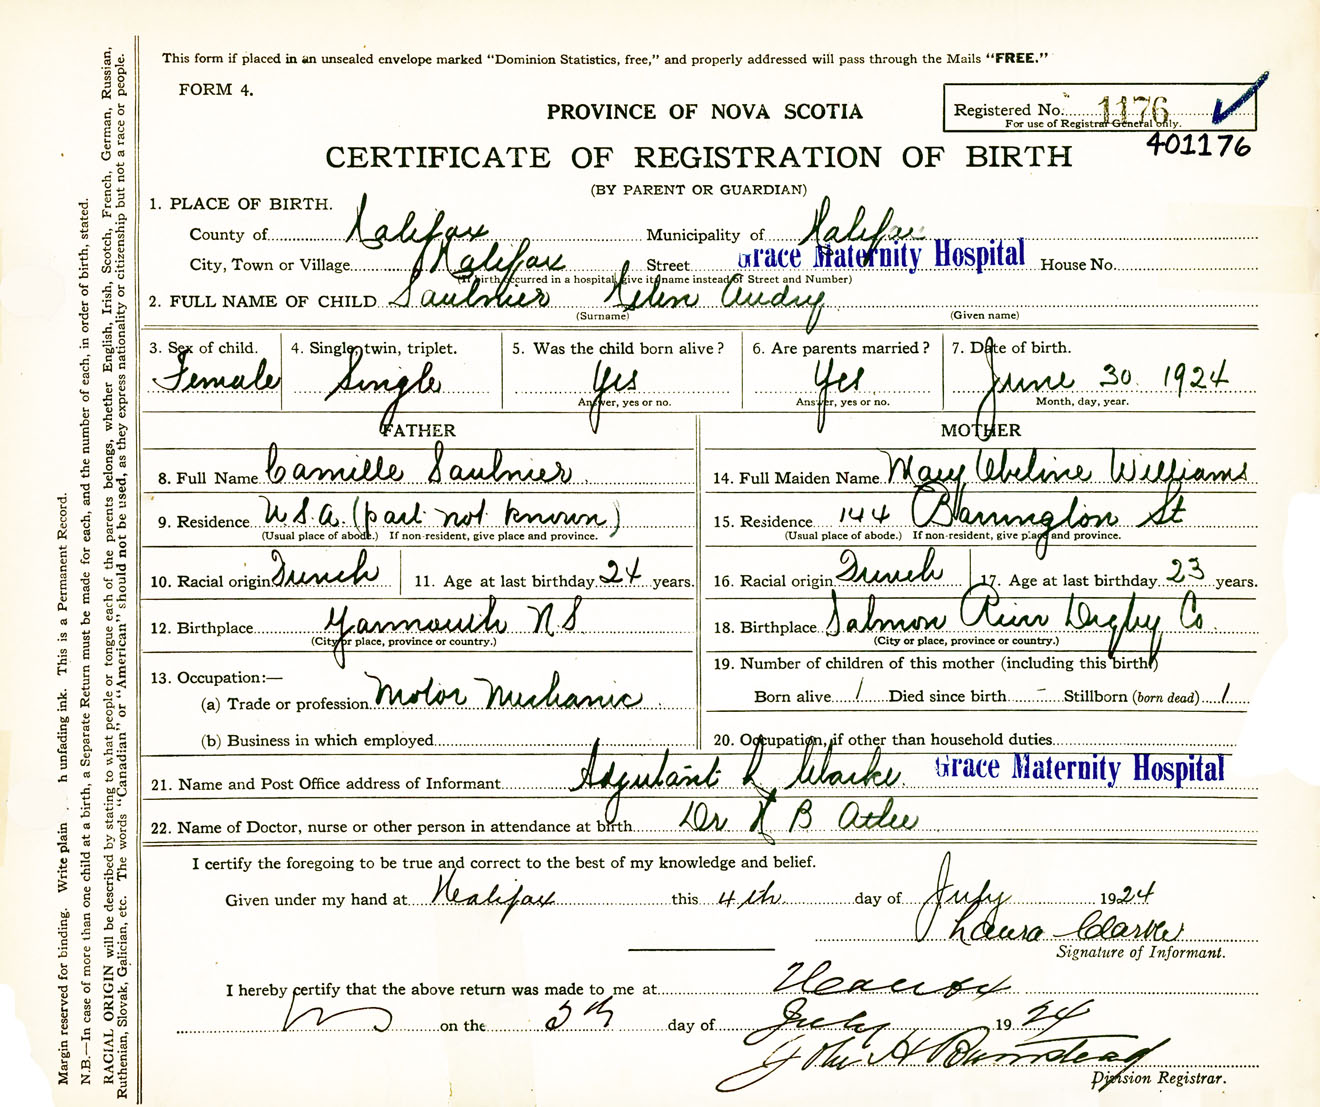 This form if placed in an unsealed envelope marked "Dominion Statistics, free," and properly addressed will pass through the Mails "FREE."
FORM 4.
PROVINCE OF NOVA SCOTIA
Registered No. 1176
For use of Registrar General only.
401176
CERTIFICATE OF REGISTRATION OF BIRTH
(BY PARENT OR GUARDIAN)
1. PLACE OF BIRTH.
County of Halifax Municipality of Halifax
City, Town or Village Halifax Street Grace Maternity Hospital House No.
(If birth occurred in a hospital, give its name instead of Street and Number)
2. FULL NAME OF CHILD Saulnier Helen Audry
(Surname) (Given name)
3. Sex of child. 4. Single, twin, triplet. 5. Was the child born alive? 6. Are parents married? 7. Date of birth.
Female Single Yes Yes June 30 1924
Answer, yes or no. Answer, yes or no. Month, day, year.
FATHER MOTHER
8. Full Name Camille Saulnier 14. Full Maiden Name Mary Williams
9. Residence U.S.A. (part not known) 15. Residence 144 Barrington St
(Usual place of abode.) If non-resident, give place and province. (Usual place of abode.) If non-resident, give place and province.
10. Racial origin French 11. Age at last birthday 24 years. 16. Racial origin French 17. Age at last birthday 23 years.
12. Birthplace Yarmouth N.S. 18. Birthplace Salmon River Digby Co.
(City or place, province or country.) (City or place, province or country.)
13. Occupation:— 19. Number of children of this mother (including this birth)
(a) Trade or profession Motor Mechanic Born alive 1 Died since birth - Stillborn (born dead) 1
(b) Business in which employed 20. Occupation, if other than household duties
21. Name and Post Office address of Informant Adjutant L Clarke. Grace Maternity Hospital
22. Name of Doctor, nurse or other person in attendance at birth Dr H B Atlee
I certify the foregoing to be true and correct to the best of my knowledge and belief.
Given under my hand at Halifax this 4th day of July 1924
Laura Clarke
Signature of Informant.
I hereby certify that the above return was made to me at Halifax
on the 5th day of July 1924
John H Barnstead
Division Registrar.
Margin reserved for binding. Write plain h unfading ink. This is a Permanent Record.
N.B.—In case of more than one child at a birth, a Separate Return must be made for each, and the number of each, in order of birth, stated.
RACIAL ORIGIN will be described by stating to what people or tongue each of the parents belongs, whether English, Irish, Scotch, French, German, Russian,
Ruthenian, Slovak, Galician, etc. The words "Canadian" or "American" should not be used, as they express nationality or citizenship but not a race or people.